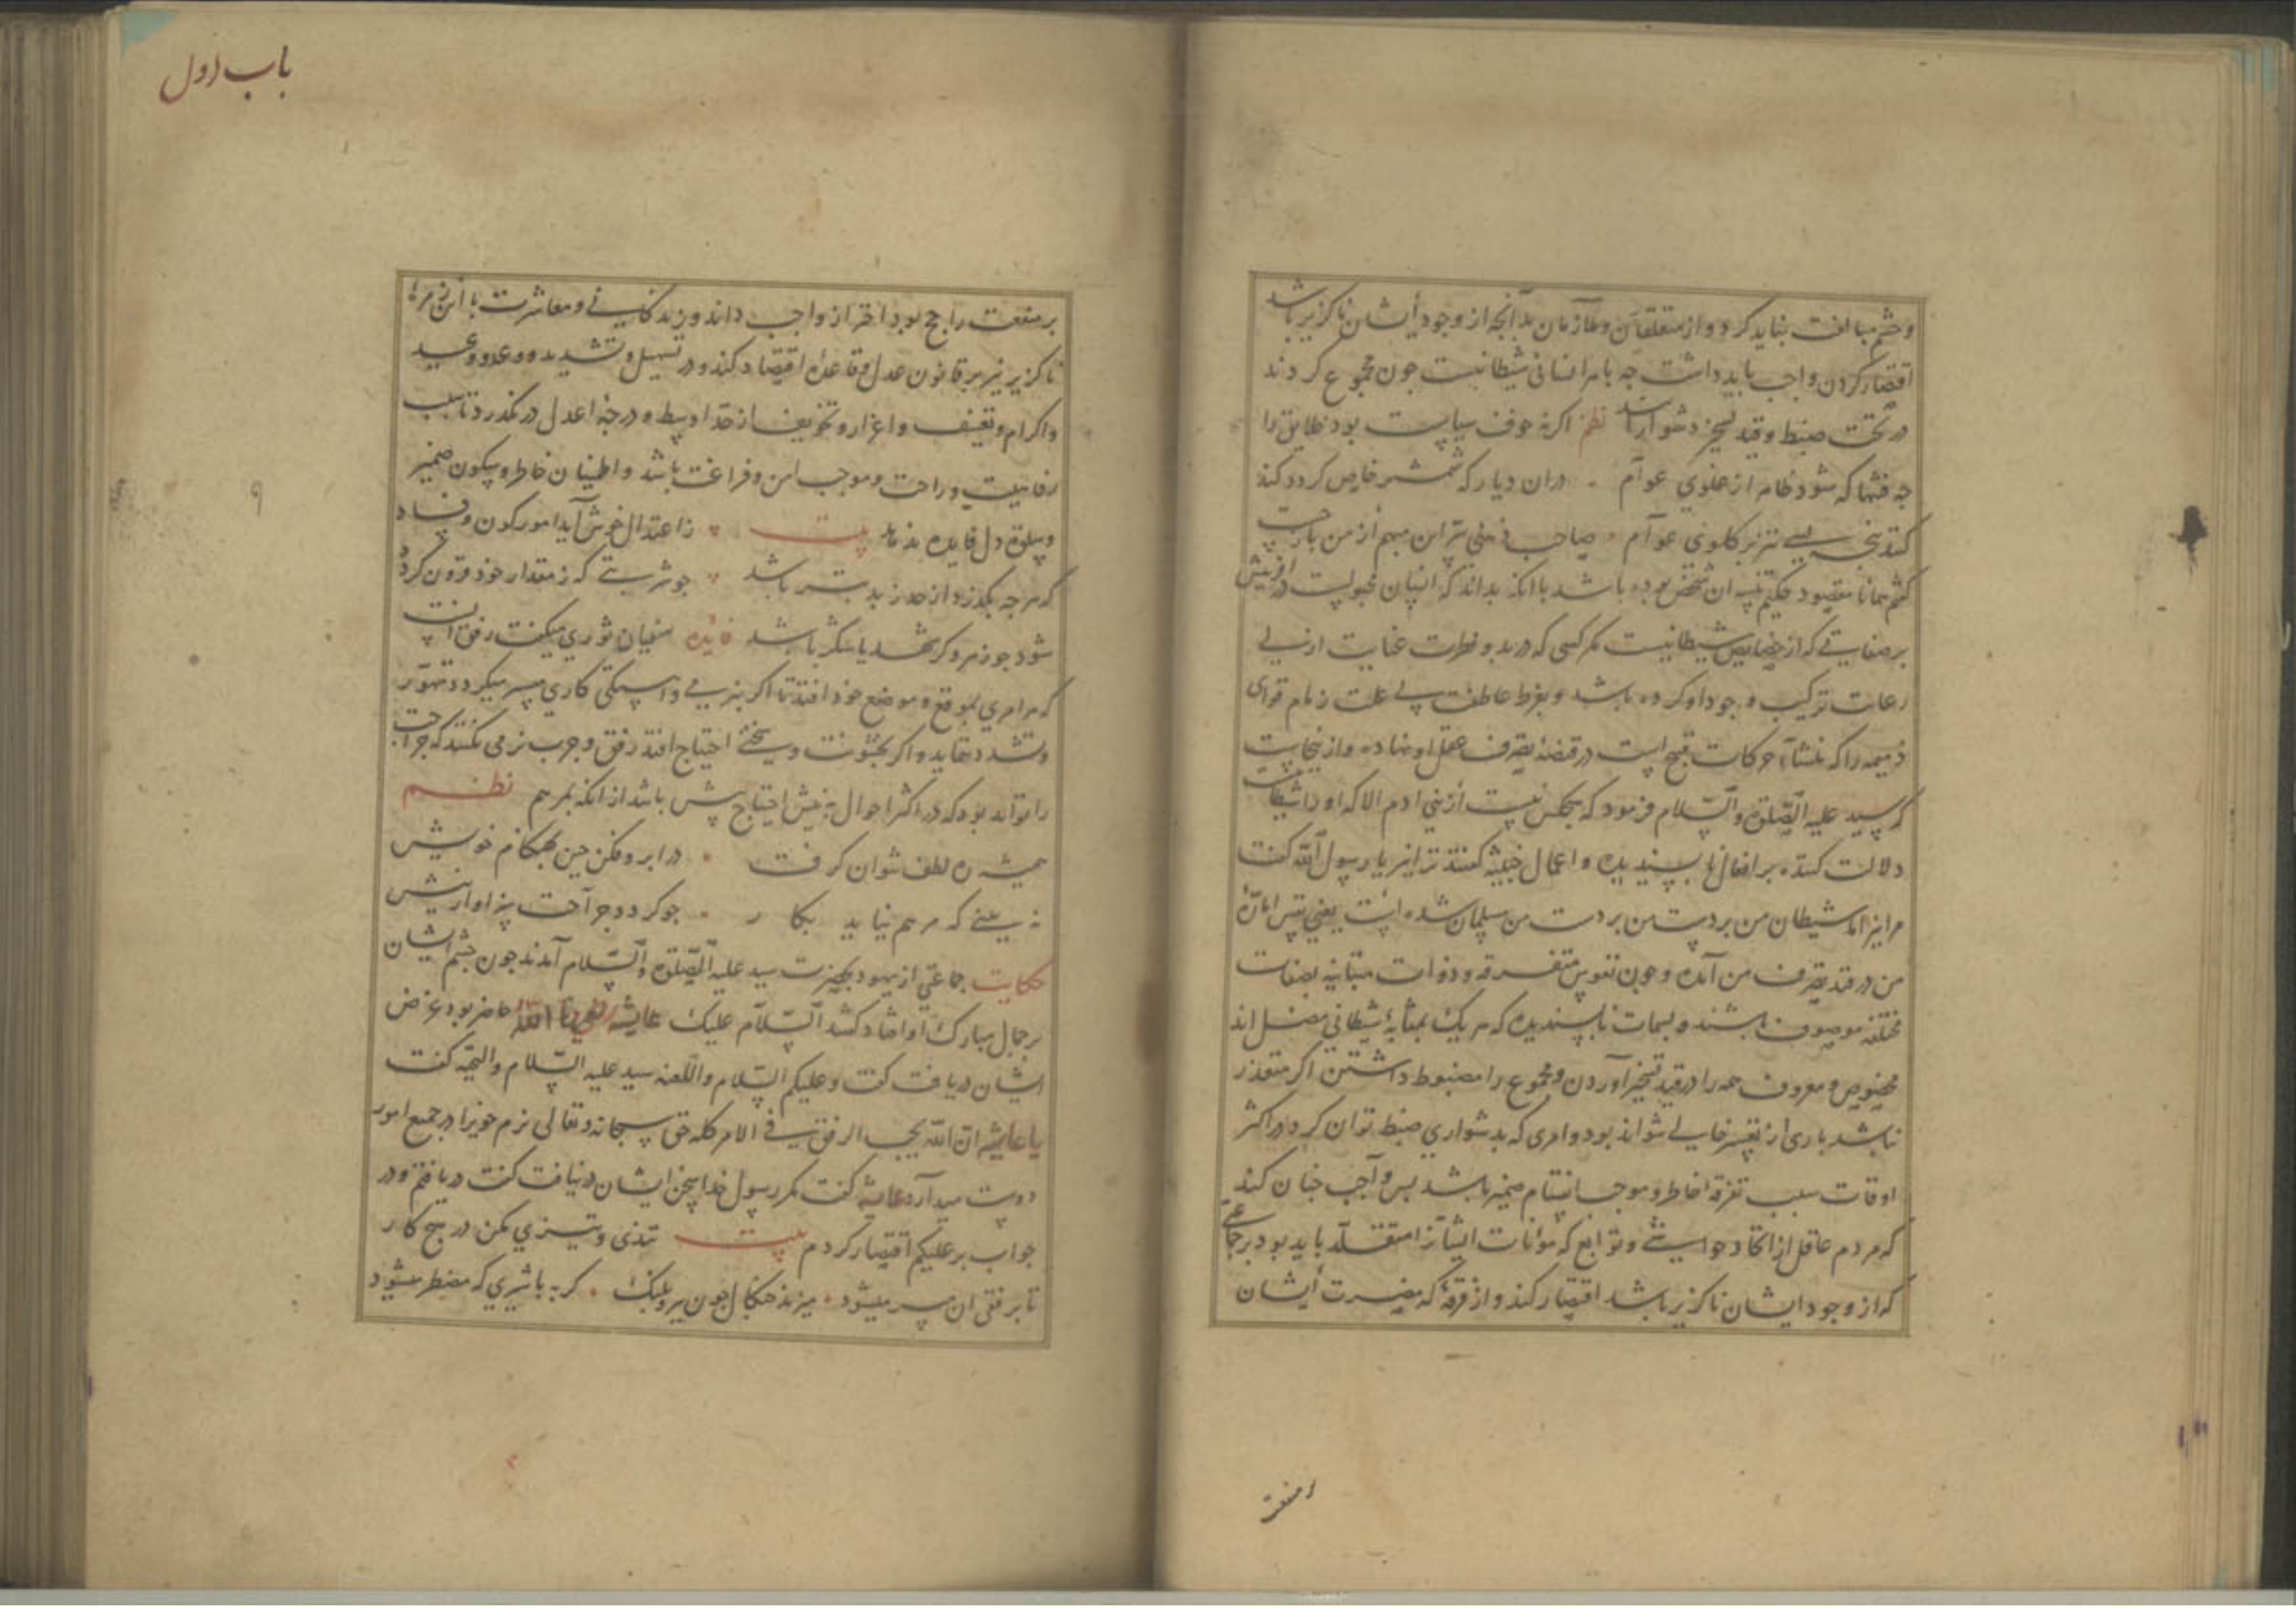 وحشم مبالغت نباید کرد و از متعلقان و ملازمان بدآنچه از وجود ایشان ناکزیر باشد
اقتصار کردن واجب باید داشت چه با هر انسانی شیطانیست چون مجموع کردند
در تحت ضبط و قید تسخیر دشوار باشد نظم اکر نه خوف سیاست بود خلایق را
چه فتنها که شود ظاهر از غلوی عوام . دران دیار که شمشیر خاص کردد کند
کنند تیز بر کلوی عوام صاحب ذهنی تر این مبهم از من باز جست
کفتم همانا مقصود حکیم ان شخص بوده باشد با انکه بداند که انسان مجبولست در افرینش
بر صفاتی که از خصایص شیطانیست مکر کسی که در بدو فطرت عنایت ازلی
رعایت ترکیب وجود او کرده باشد و بفرط عاطفت بی علت زمام قوای
ذمیمه را که منشاء حرکات قبیح است در قبضه تصرف عقل او نهاده و ازینجاست
که سید علیه الصلوة والسلام فرمود که هیچکس نیست از بنی ادم الا که او را شیطانیست
دلالت کننده بر افعال ناپسندیده و اعمال خبیثه کفتند ترا نیز یا رسول الله کفت
مرا نیز الا شیطان من بر دست من مسلمان شده است یعنی نفس اماره
من در قید تصرف من آمده و چون نفوس متفرقه و ذوات متباینه بصفات
مختلفه موصوف باشند و بسمات ناپسندیده که هر یک بمثابه شیطانی مضل اند
مخصوص و معروف همه را در قید تسخیر آوردن و مجموع را مضبوط داشتن اکر متعذر
نباشد باری از تعسر خالی نتواند بود و امری که بدشواری ضبط توان کرد در اکثر
اوقات سبب تفرقه خاطر و موجب انقسام ضمیر باشد پس واجب چنان کند
که مردم عاقل از اتخاذ حواشی و توابع که مؤنات ایشانرا متقلد باید بود بر جماعتی
که از وجود ایشان ناکزیر باشد اقتصار کند و از فرقه که مضرت ایشان
بر منفعت
باب اول
۹
بر منفعت راجح بود احتراز واجب داند و زندکانی و معاشرت با این زمره
ناکزیر نیز بر قانون عدل و قاعده اقتصاد کند و در تسهیل و تشدید و وعد و وعید
و اکرام و تعنیف و اعزاز و تخویف از حد اوسط و درجه اعدل در نکذرد تا سبب
رفاهیت و راحت و موجب امن و فراغت باشد و اطمینان خاطر و سکون ضمیر
وسلوة دل فایده بیت زاعتدال خوش آید امور کون و فساد
که هرچه بکذرد از حد زبد بتر باشد چو شربتی که ز مقدار خود فزون کردد
شود چو زهر و کر شهد یا شکر باشد فایده سفیان ثوری میکفت رفق انست
که هر امری بموقع و موضع خود افتد تا اکر بنرمی و اهستکی کاری میسر میکردد تهور
و تشدد ننماید و اکر بخشونت و سختی احتیاج افتد رفق و چرب نرمی نکنند که جراحت
را تواند بود که در اکثر احوال به نیش احتیاج بیش باشد از انکه بمرهم نظم
همیشه ره لطف نتوان کرفت . در ابرو فکن چین بهنکام خویش
نه بینی که مرهم نیاید بکار . چو کردد جراحت سزاوار نیش
حکایت جماعتی از یهود بحضرت سید علیه الصلوة والسلام آمدند چون چشم ایشان
بر جمال مبارک او افتاد کفتند السام علیک عایشه رضی الله حاضر بود غرض
ایشان دریافت کفت و علیکم السلام واللعنه سید علیه السلام والتحیه کفت
یا عایشه ان الله یحب الرفق فی الامر کله حق سبحانه و تعالی نرم خویرا در جمیع امور
دوست میدارد عایشه کفت مکر رسول خدا سخن ایشان در نیافت کفت دریافتم و در
جواب بر علیکم اقتصار کردم بیت تندی و تیزی مکن در هیچ کار
تا برفق ان میسر میشود . میزند چنکال چون ببر و پلنک . کربه با شیری که مضطر میشود